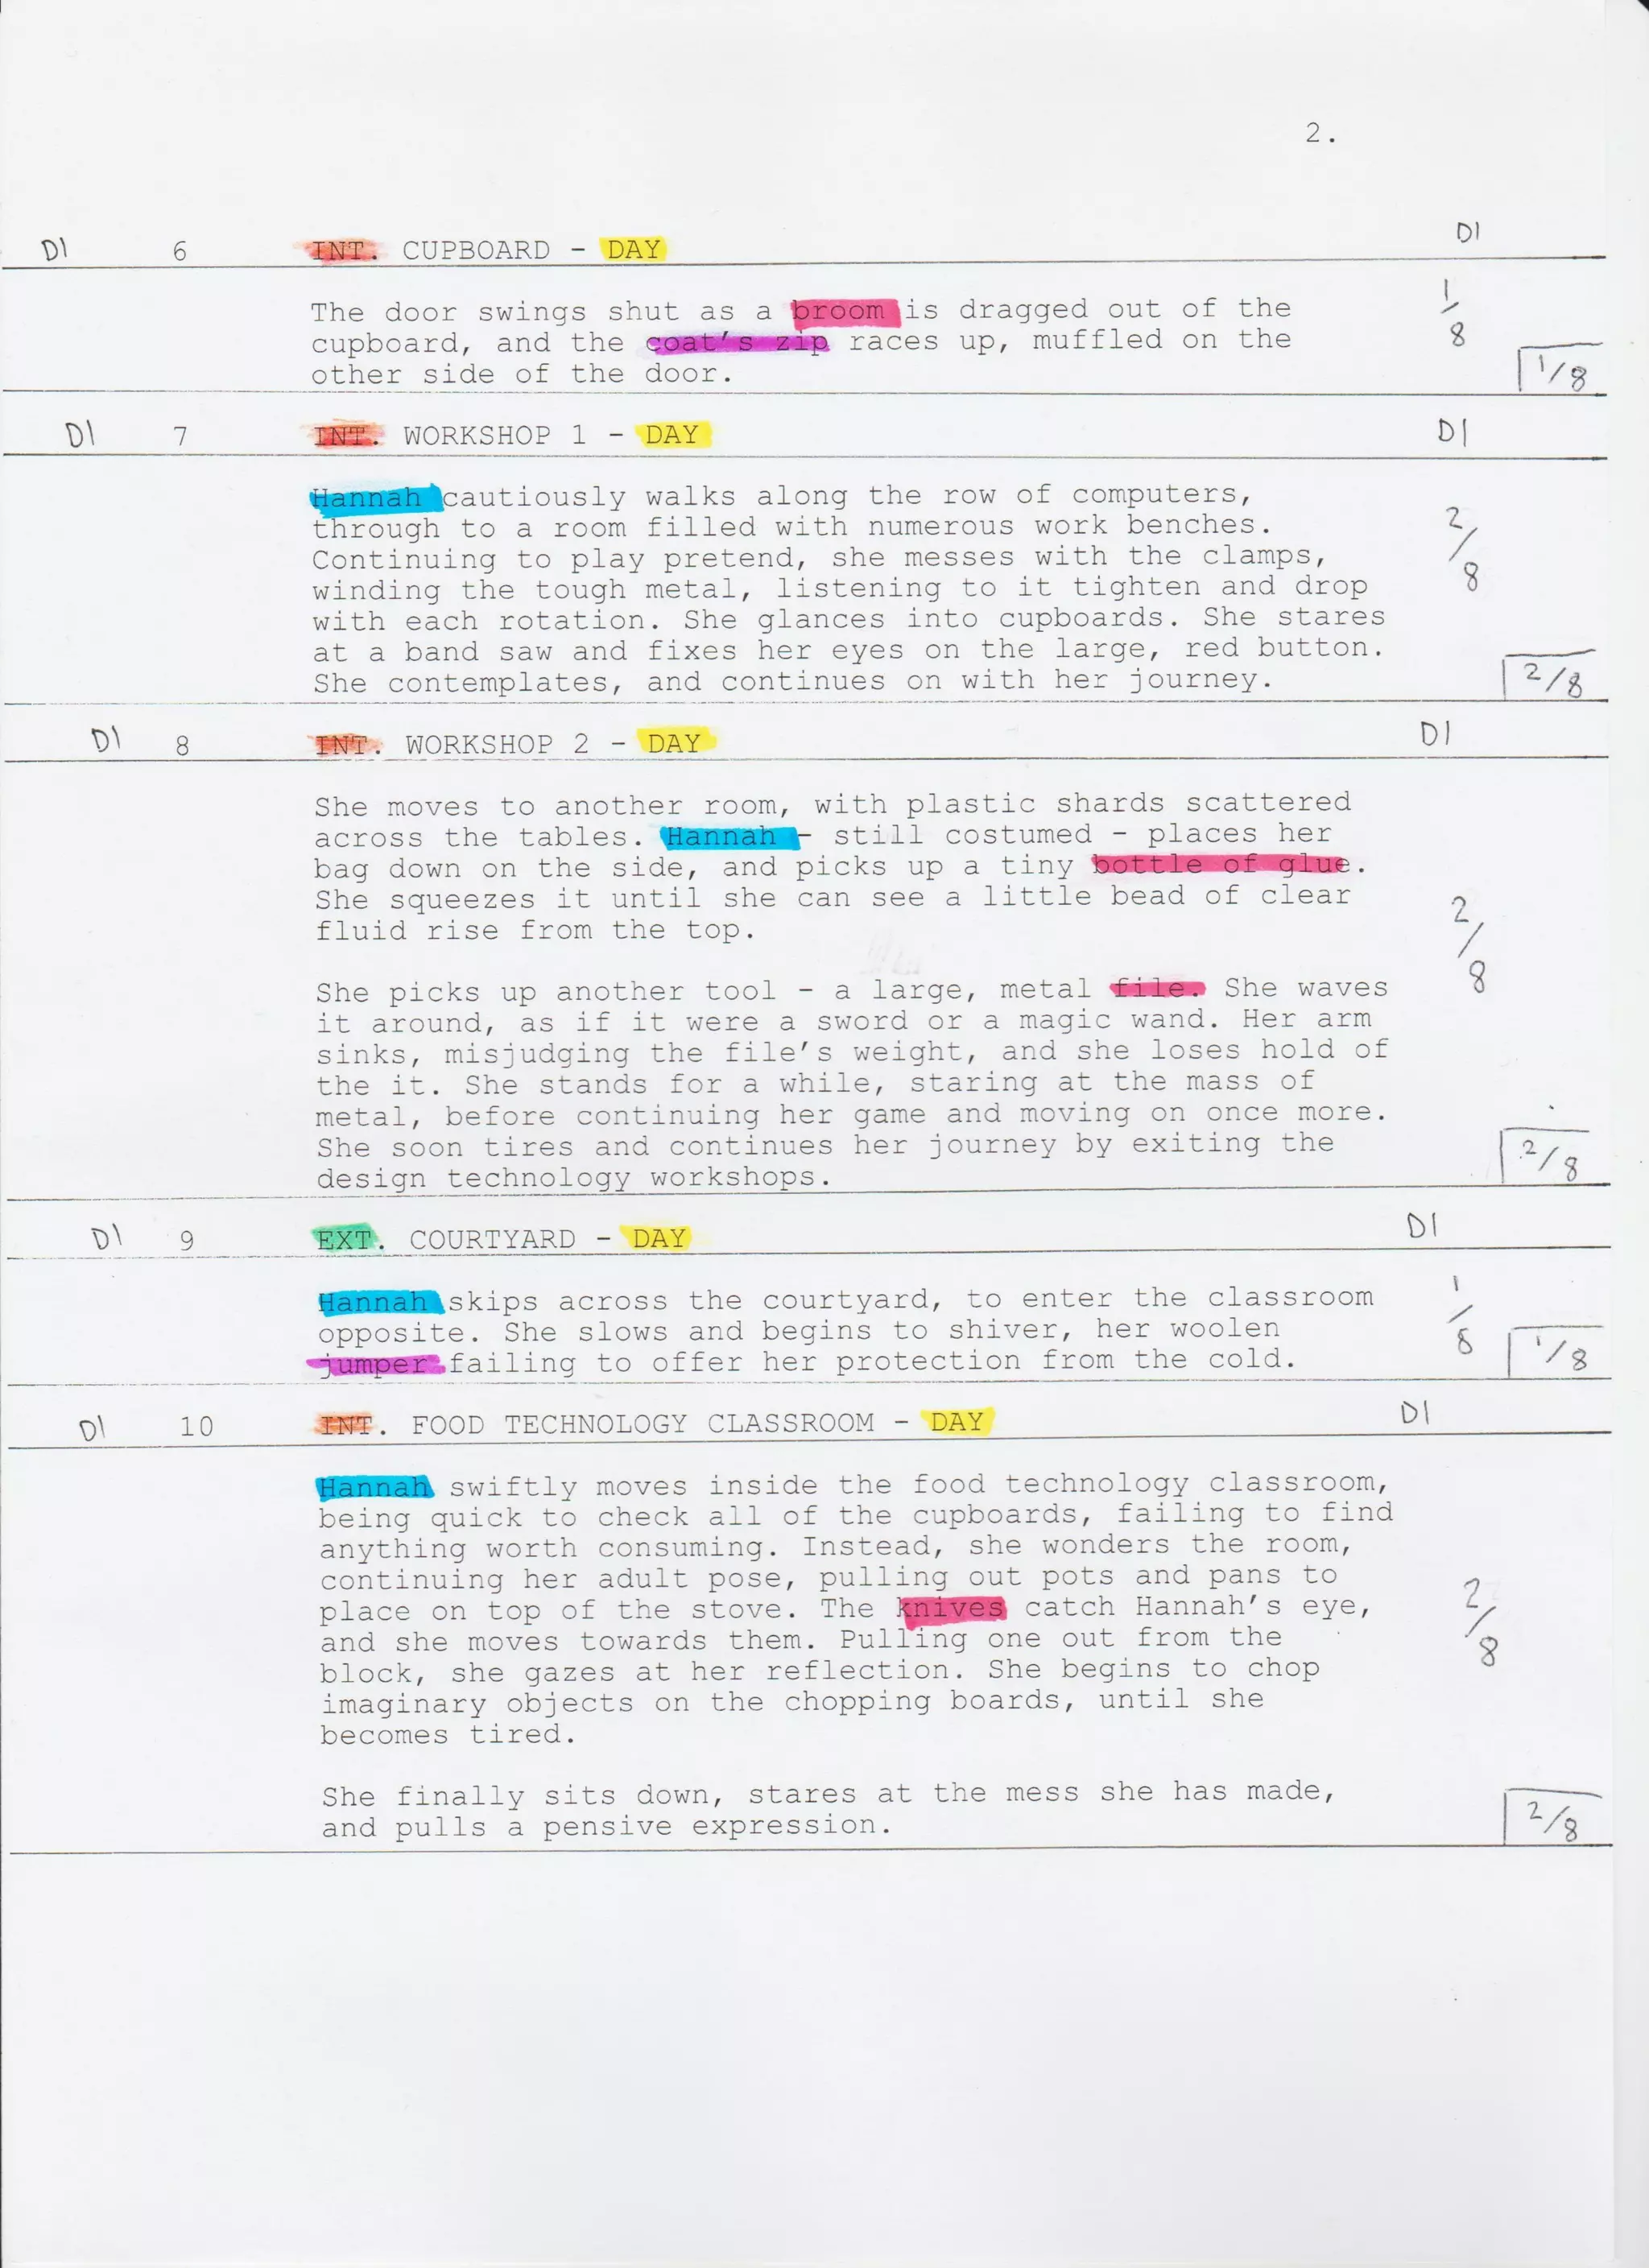 2.
D1 6 INT. CUPBOARD - DAY D1
The door swings shut as a broom is dragged out of the
cupboard, and the coat's zip races up, muffled on the
other side of the door.
1/8
1/8
D1 7 INT. WORKSHOP 1 - DAY D1
Hannah cautiously walks along the row of computers,
through to a room filled with numerous work benches.
Continuing to play pretend, she messes with the clamps,
winding the tough metal, listening to it tighten and drop
with each rotation. She glances into cupboards. She stares
at a band saw and fixes her eyes on the large, red button.
She contemplates, and continues on with her journey.
2/8
2/8
D1 8 INT. WORKSHOP 2 - DAY D1
She moves to another room, with plastic shards scattered
across the tables. Hannah - still costumed - places her
bag down on the side, and picks up a tiny bottle of glue.
She squeezes it until she can see a little bead of clear
fluid rise from the top.
2/8
She picks up another tool - a large, metal file. She waves
it around, as if it were a sword or a magic wand. Her arm
sinks, misjudging the file's weight, and she loses hold of
the it. She stands for a while, staring at the mass of
metal, before continuing her game and moving on once more.
She soon tires and continues her journey by exiting the
design technology workshops.
2/8
D1 9 EXT. COURTYARD - DAY D1
Hannah skips across the courtyard, to enter the classroom
opposite. She slows and begins to shiver, her woolen
jumper failing to offer her protection from the cold.
1/8
1/8
D1 10 INT. FOOD TECHNOLOGY CLASSROOM - DAY D1
Hannah swiftly moves inside the food technology classroom,
being quick to check all of the cupboards, failing to find
anything worth consuming. Instead, she wonders the room,
continuing her adult pose, pulling out pots and pans to
place on top of the stove. The knives catch Hannah's eye,
and she moves towards them. Pulling one out from the
block, she gazes at her reflection. She begins to chop
imaginary objects on the chopping boards, until she
becomes tired.
2/8
She finally sits down, stares at the mess she has made,
and pulls a pensive expression.
2/8